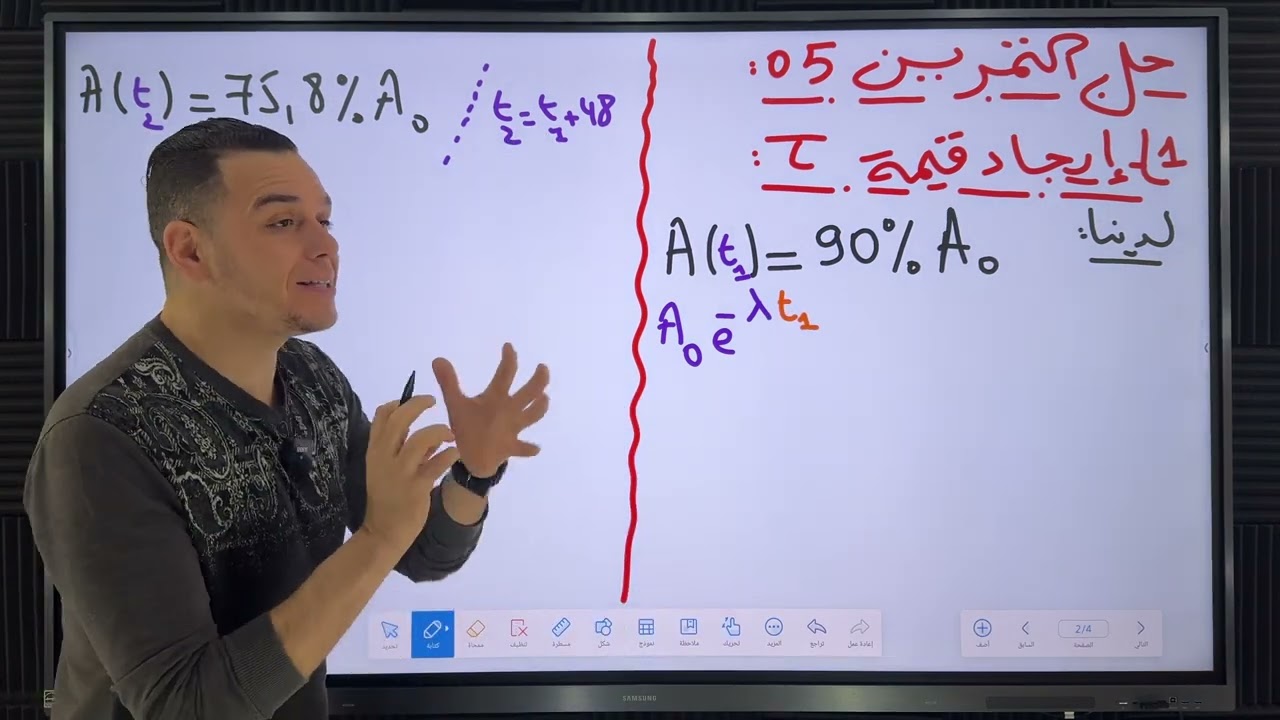 حل التمرين 05:
1/ إيجاد قيمة τ:
لدينا:
A(t₁) = 90% A₀
A₀ e^-λt₁
A(t₂) = 75,8% A₀
t₂ = t₁ + 48
تحديد
كتابة
ممحاة
تنظيف
مسطرة
شكل
نموذج
ملاحظة
تحريك
المزيد
تراجع
إعادة عمل
أضف
السابق
2/4
الصفحة
التالي
SAMSUNG